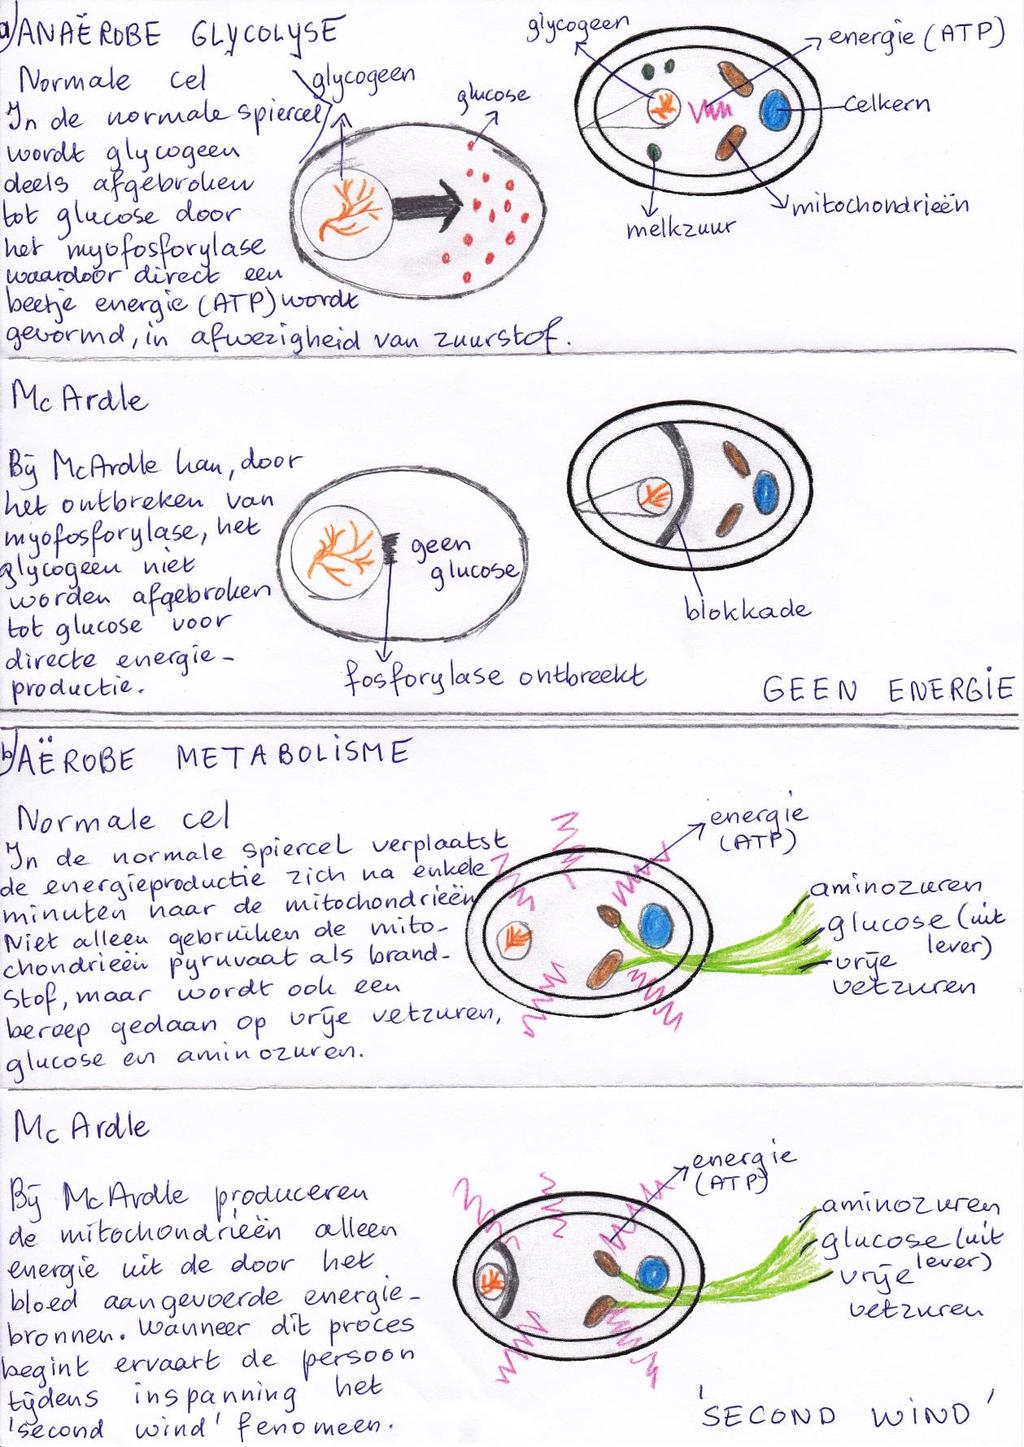 a) ANAËROBE GLYCOLYSE
Normale cel
In de normale spiercel
wordt glycogeen
deels afgebroken
tot glucose door
het myofosforylase
waardoor direct een
beetje energie (ATP) wordt
gevormd, in afwezigheid van zuurstof.
glycogeen
glucose
glycogeen
energie (ATP)
celkern
mitochondrieën
melkzuur
McArdle
Bij McArdle kan, door
het ontbreken van
myofosforylase, het
glycogeen niet
worden afgebroken
tot glucose voor
directe energie-
productie.
geen
glucose
fosforylase ontbreekt
blokkade
GEEN ENERGIE
b) AËROBE METABOLISME
Normale cel
In de normale spiercel verplaatst
de energieproductie zich na enkele
minuten naar de mitochondrieën
Niet alleen gebruiken de mito-
chondrieën pyruvaat als brand-
stof, maar wordt ook een
beroep gedaan op vrije vetzuren,
glucose en aminozuren.
energie
(ATP)
aminozuren
glucose (uit
lever)
vrije
vetzuren
McArdle
Bij McArdle produceren
de mitochondrieën alleen
energie uit de door het
bloed aangevoerde energie-
bronnen. Wanneer dit proces
begint ervaart de persoon
tijdens inspanning het
'second wind' fenomeen.
energie
(ATP)
aminozuren
glucose (uit
lever)
vrije
vetzuren
'SECOND WIND'